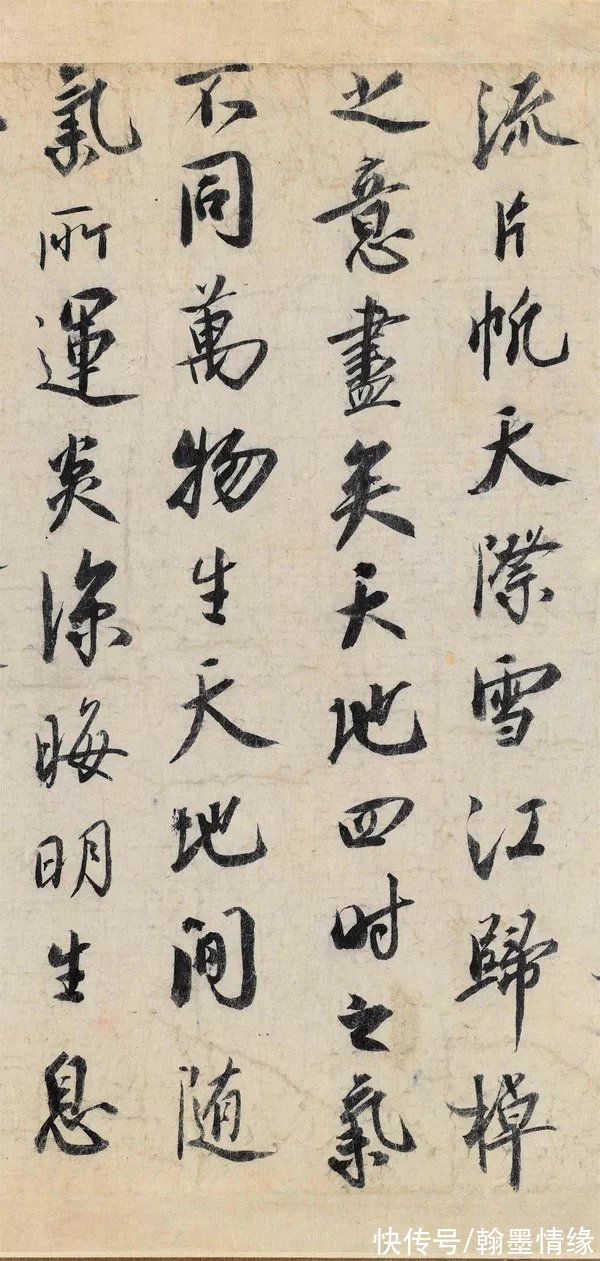 流片帆天際雪江歸棹
之意盡矣天地四时之氣
不同萬物生天地間随
氣所運炎涼晦明生息
快传号/翰墨情缘